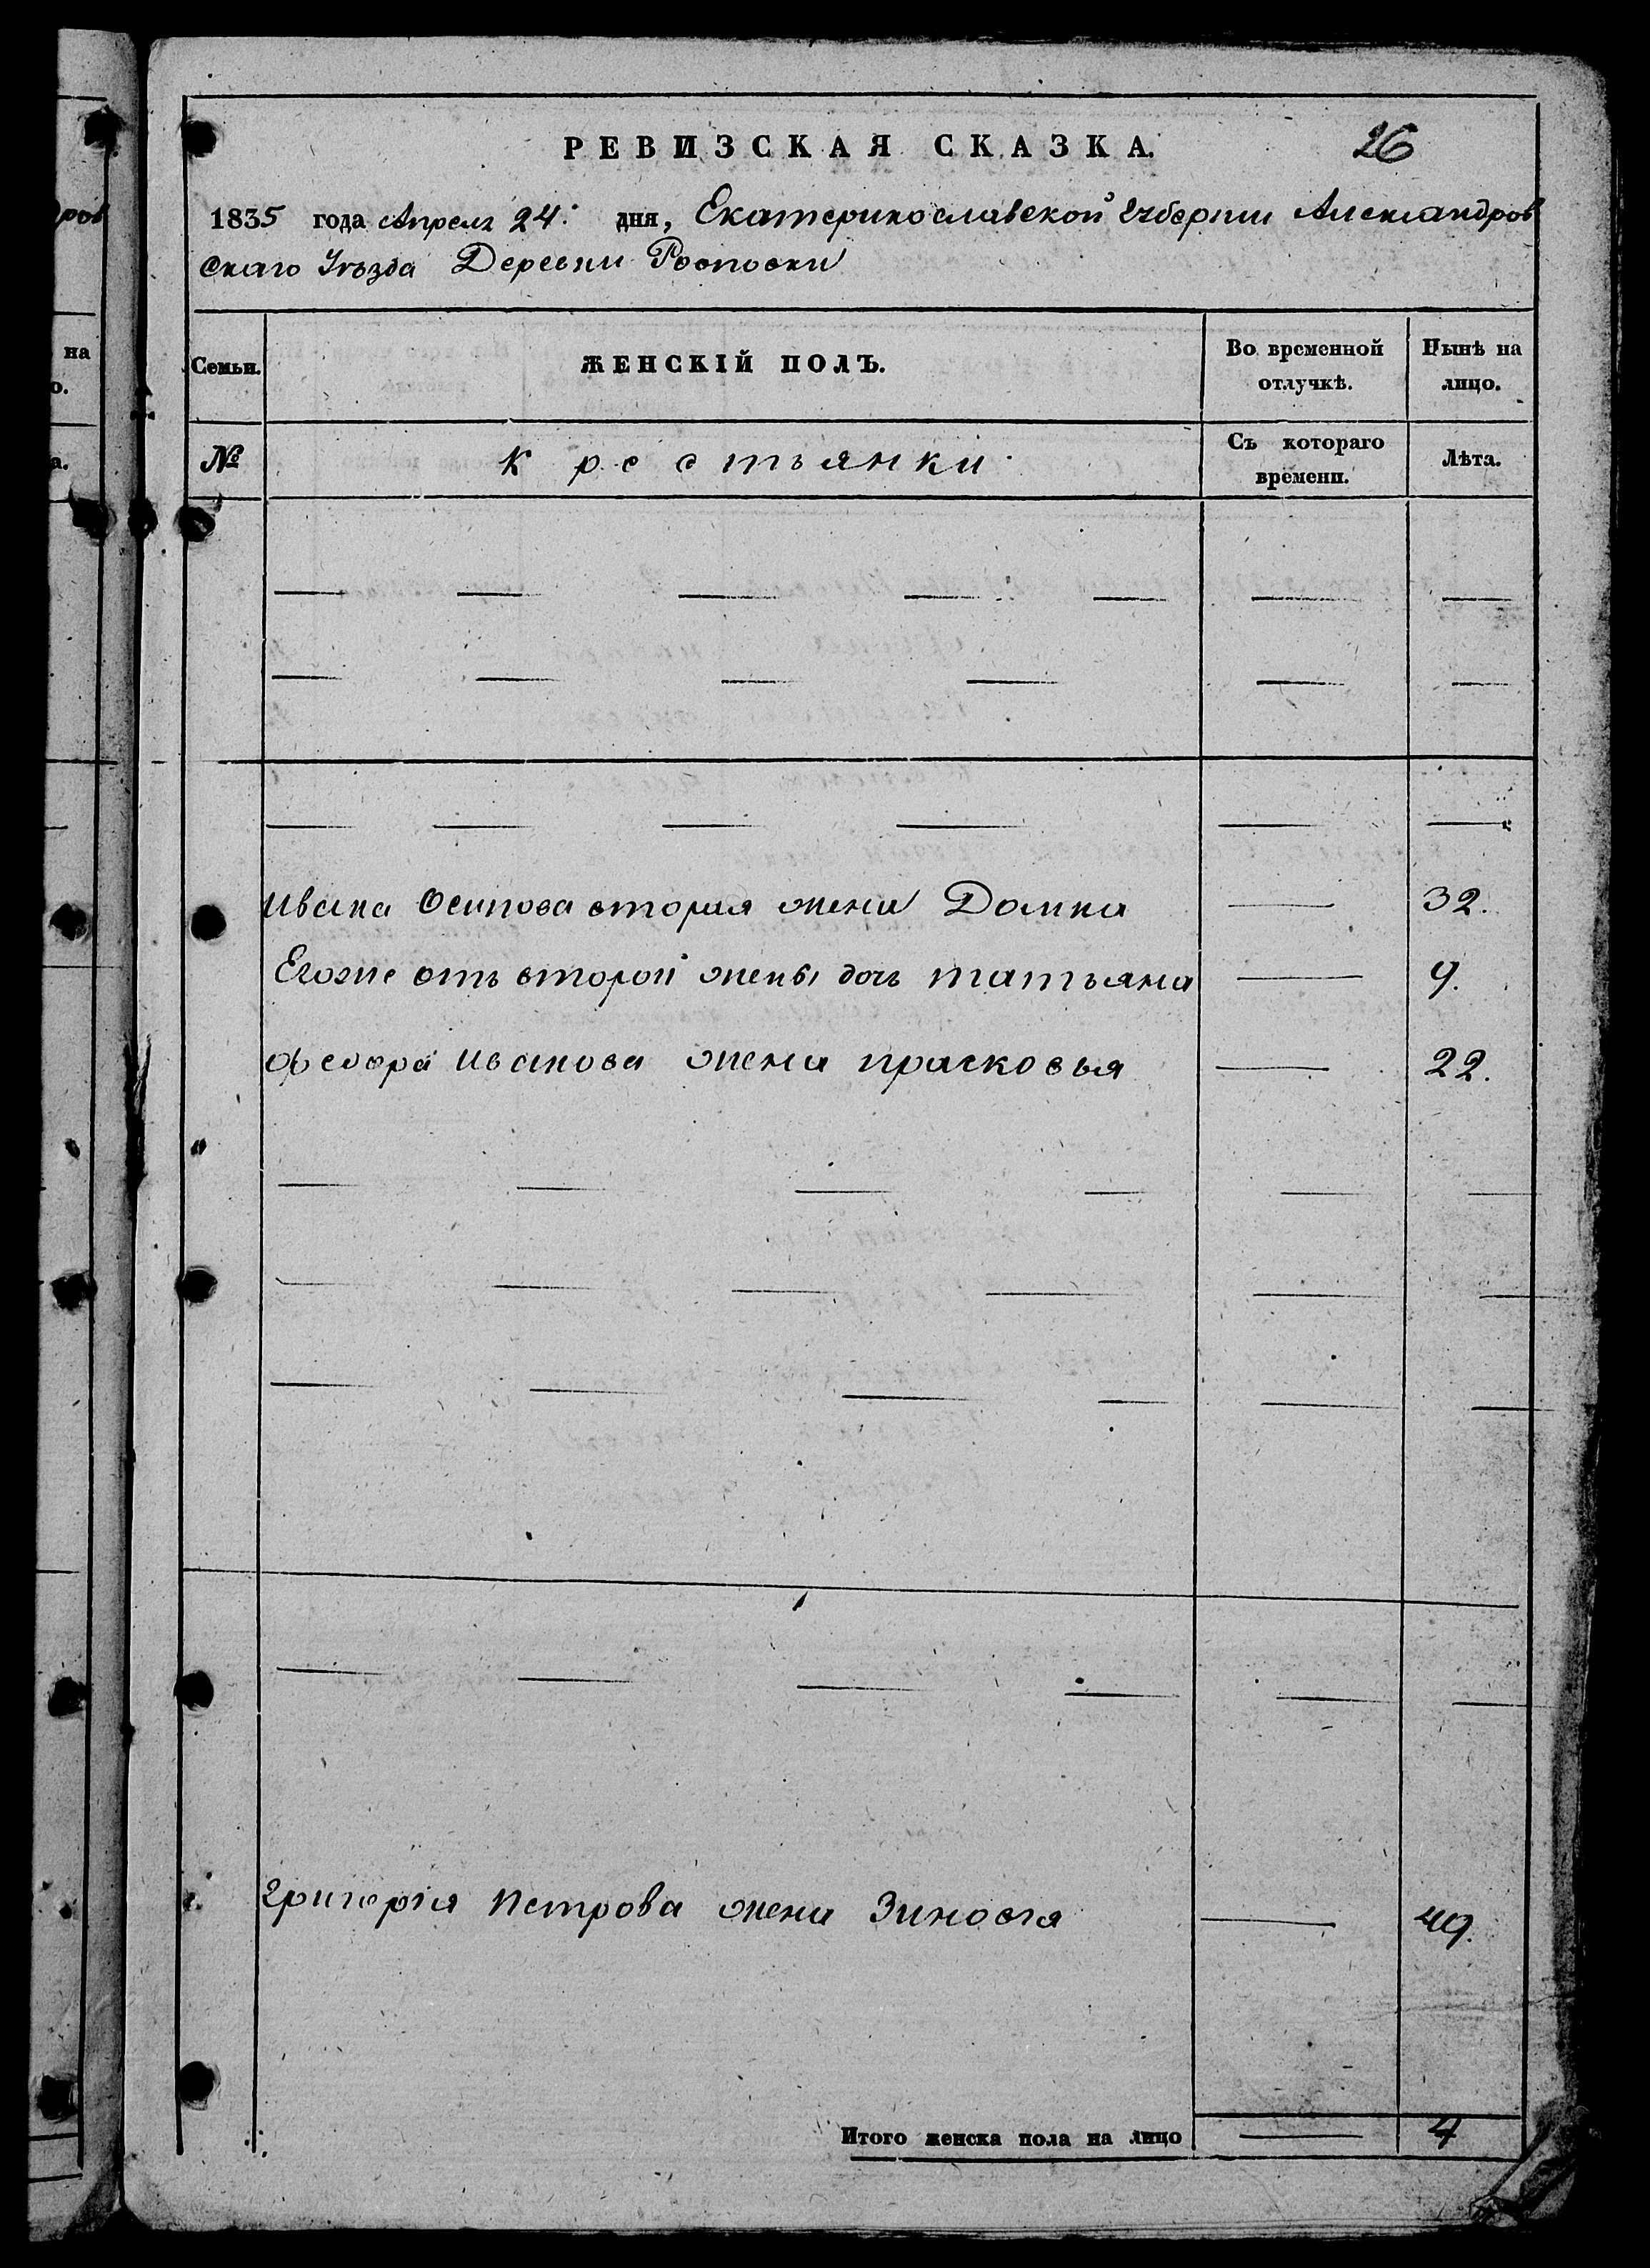 РЕВИЗСКАЯ СКАЗКА.
26
1835 года Апреля 24: дня, Екатеринославской Губернии Александров
скаго Уѣзда Деревни
Семьи. ЖЕНСКІЙ ПОЛЪ. Во временной отлучкѣ. Нынѣ на лицо.
№ Крестьянки Съ котораго времени. Лѣта.
Ивана Осипова вторая жена Домна — 32.
Егоже отъ второй жены дочь татьяна — 9.
федора Иванова жена прасковья — 22.
Григорія Петрова жена Зиновія — 49.
Итого женска пола на лицо — 4
ров
на
о.
а.